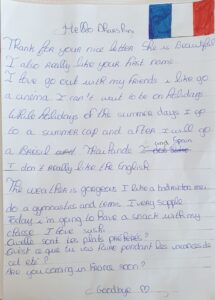 Hello
Thank for your nice letter. She is Beautiful
I also really like your first name.
I love go out with my friends i like go
a cinema I can't wait to be on holidays
While holidays of the summer days I go
to a summer cap and after I will go
a and Thailande and Spain
I don't really like the English
The weather is gorgeous I like a badminton
do a gymnastics and tennis Every
Today i'm going to have a snack with my
I love
Quelle sont tes plats préféré?
Qu'est ce que tu vas faire pendant les vacances de
cet été?
Are you coming in France soon?
Goodbye ♡